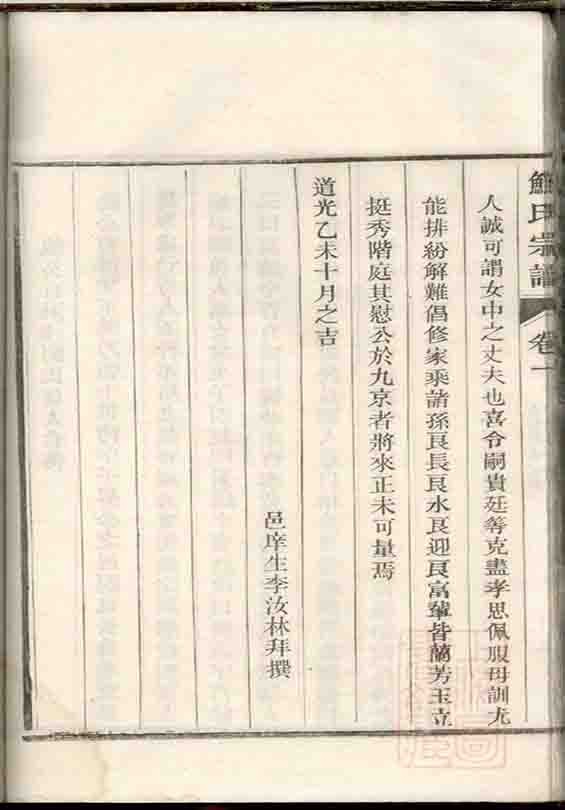 氏宗譜
卷一
人誠可謂女中之丈夫也喜令嗣貴廷等克盡孝思佩服母訓尤
能排紛解難倡修家乘諸孫良長良水良迎良富輩皆蘭芳玉立
挺秀階庭其慰公於九京者將來正未可量焉
道光乙未十月之吉
邑庠生李汝林拜撰